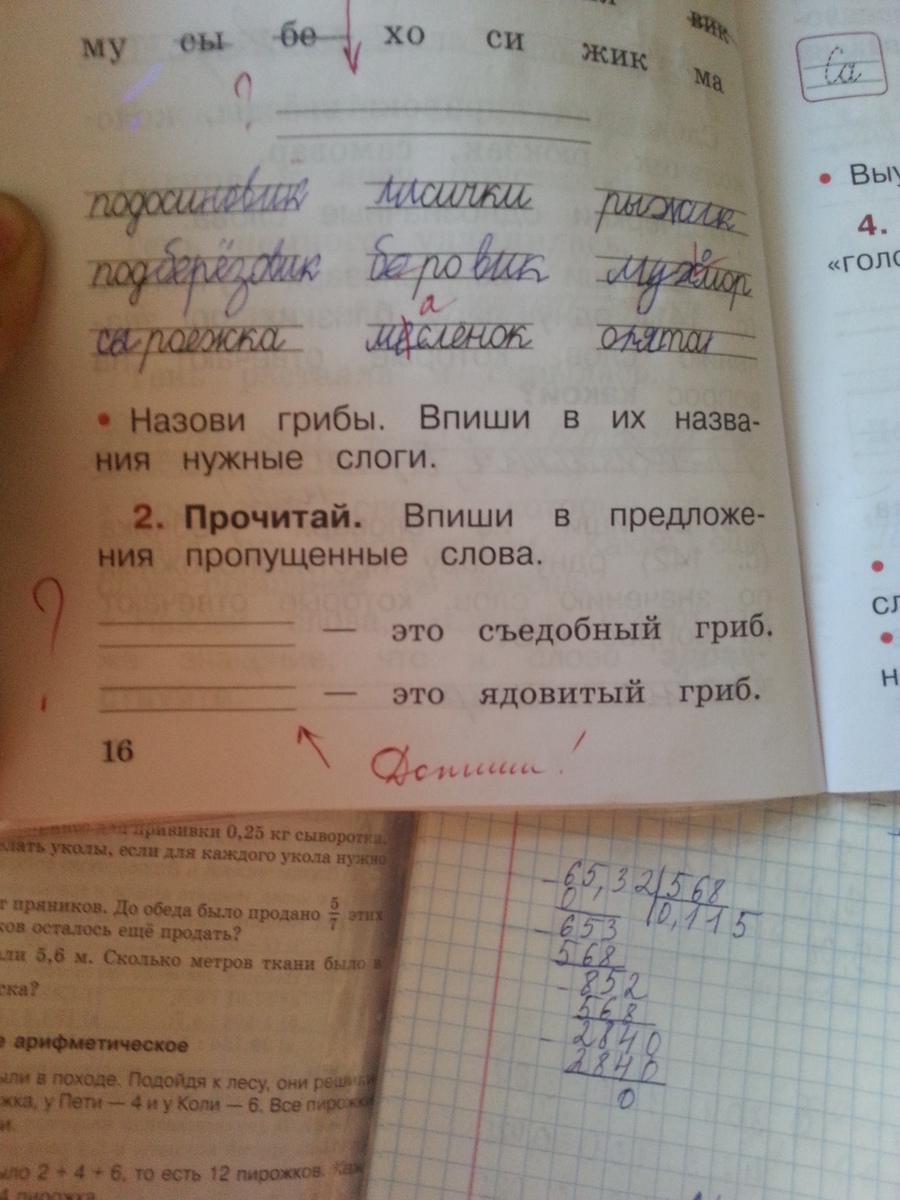 вик
му сы бе хо си жик ма
?
подосиновик лисички рыжик
подберёзовик боровик мухомор
сыроежка масленок опята
• Назови грибы. Впиши в их назва-
ния нужные слоги.
2. Прочитай. Впиши в предложе-
ния пропущенные слова.
? — это съедобный гриб.
— это ядовитый гриб.
16
Допиши!
Са
• Выу
4.
«голо
сл
н
прививки 0,25 кг сыворотки.
елать уколы, если для каждого укола нужно
г пряников. До обеда было продано 5/7 этих
ков осталось ещё продать?
али 5,6 м. Сколько метров ткани было в
ска?
е арифметическое
ыли в походе. Подойдя к лесу, они решили
жка, у Пети — 4 и у Коли — 6. Все пирожки
и.
ыло 2 + 4 + 6, то есть 12 пирожков.
4 пирожка
65,32 568
0 0,115
653
568
852
568
2840
2840
0